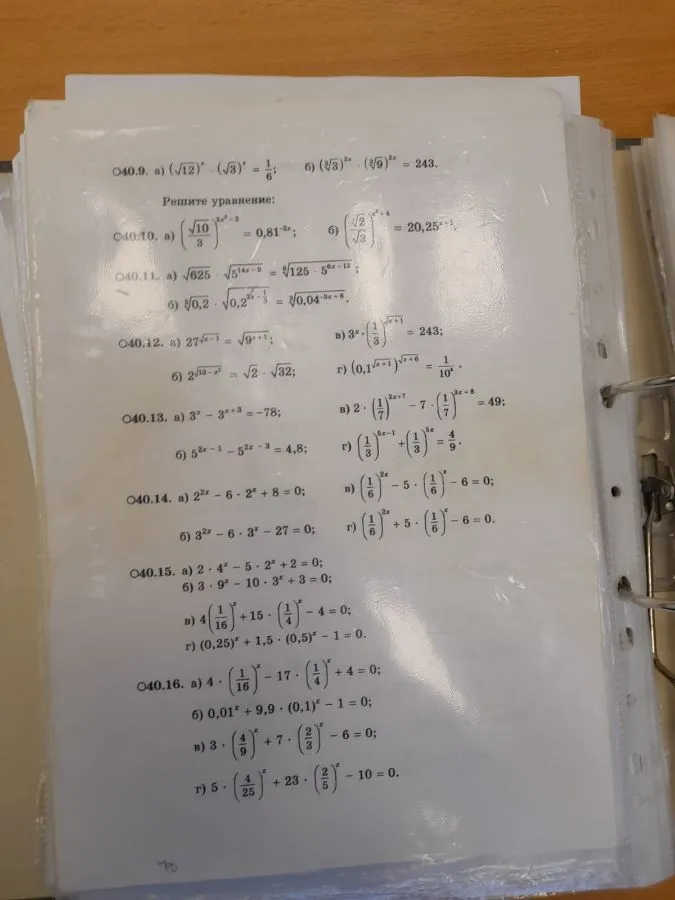 40.9. а) (√12)^x · (√3)^x = 1/6; б) (∛3)^{2x} · (∛9)^{2x} = 243.
Решите уравнение:
40.10. а) (√10/3)^{3x²−3} = 0,81^{−2x}; б) = 20,25^{x+1}.
40.11. а) √625 · √(5^{14x−9}) = ⁶√(125 · 5^{6x−12});
б) ∛0,2 · √(0,2^{2x−1/3}) = ∛(0,04^{−3x+6}).
40.12. а) 27^{√(x−1)} = √(9^{x+1}); в) 3^x · (1/3)^{√(x+1)} = 243;
б) 2^{√(13−x²)} = √2 · √32; г) (0,1^{√(x+1)})^{√(x+6)} = 1/10^x.
40.13. а) 3^x − 3^{x+3} = −78; в) 2 · (1/7)^{3x+7} − 7 · (1/7)^{3x+8} = 49;
б) 5^{2x−1} − 5^{2x−3} = 4,8; г) (1/3)^{5x−1} + (1/3)^{5x} = 4/9.
40.14. а) 2^{2x} − 6 · 2^x + 8 = 0; в) (1/6)^{2x} − 5 · (1/6)^x − 6 = 0;
б) 3^{2x} − 6 · 3^x − 27 = 0; г) (1/6)^{2x} + 5 · (1/6)^x − 6 = 0.
40.15. а) 2 · 4^x − 5 · 2^x + 2 = 0;
б) 3 · 9^x − 10 · 3^x + 3 = 0;
в) 4(1/16)^x + 15 · (1/4)^x − 4 = 0;
г) (0,25)^x + 1,5 · (0,5)^x − 1 = 0.
40.16. а) 4 · (1/16)^x − 17 · (1/4)^x + 4 = 0;
б) 0,01^x + 9,9 · (0,1)^x − 1 = 0;
в) 3 · (4/9)^x + 7 · (2/3)^x − 6 = 0;
г) 5 · (4/25)^x + 23 · (2/5)^x − 10 = 0.